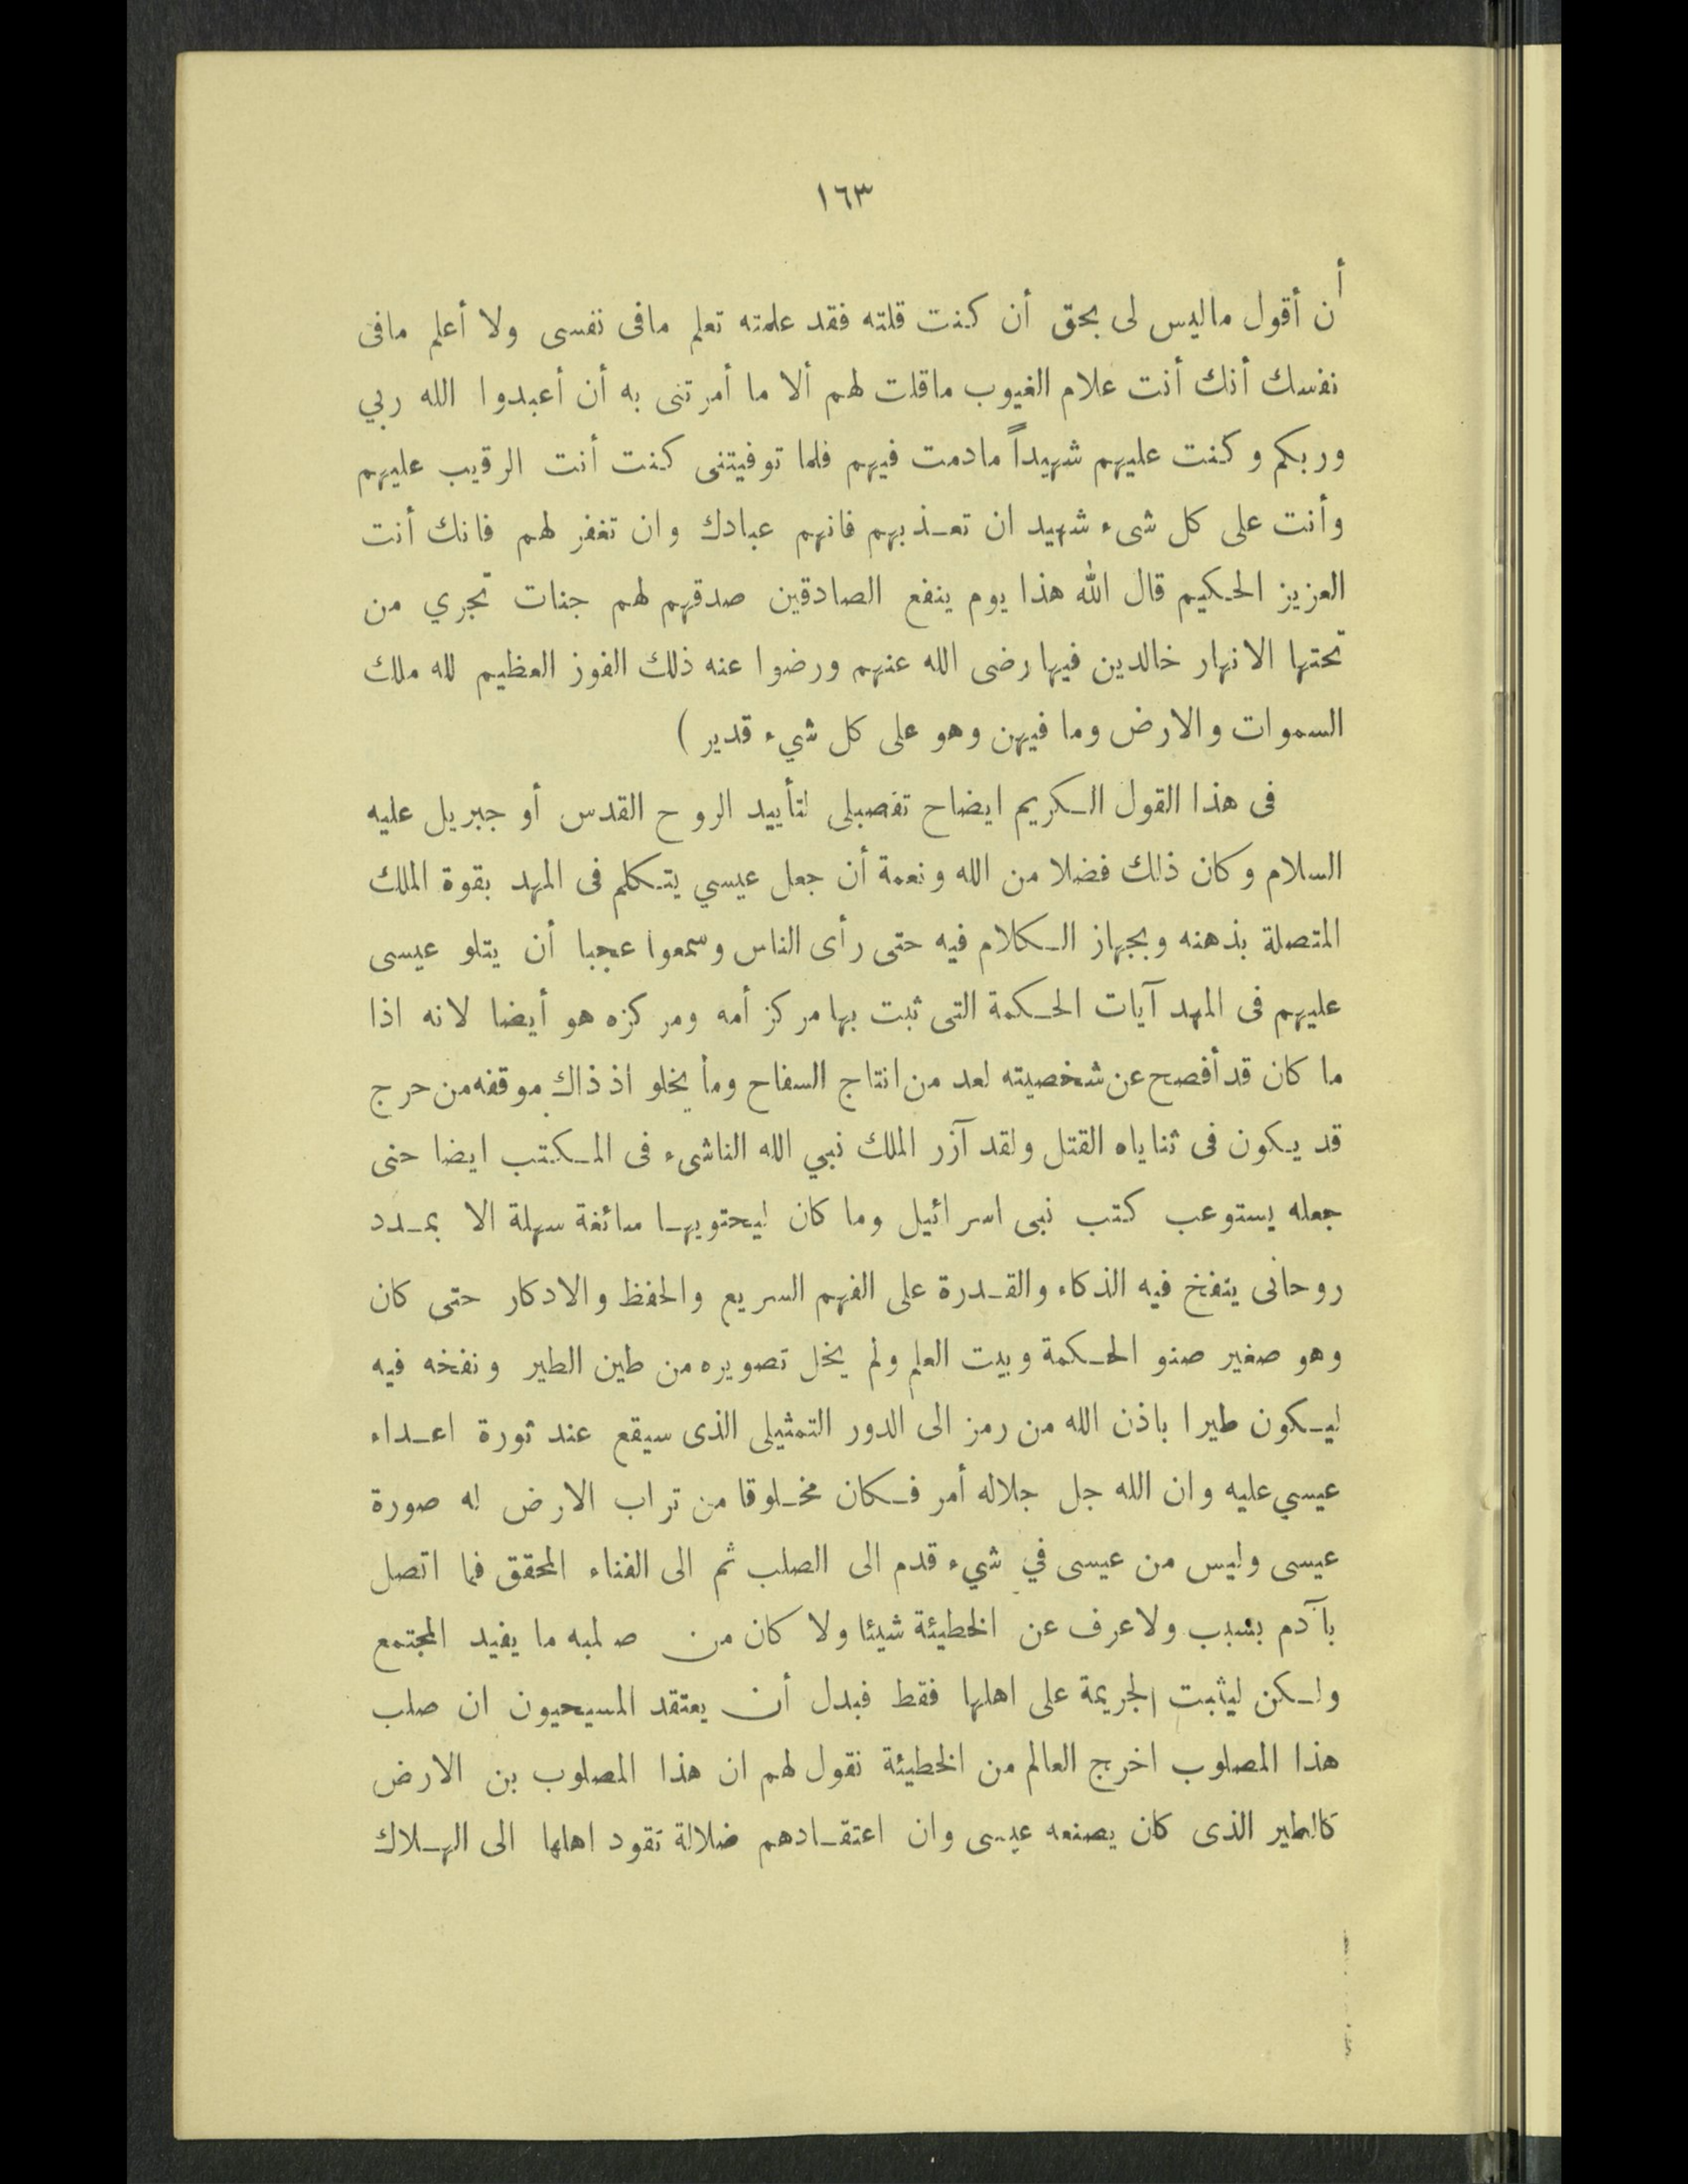 ١٦٣
أن أقول ماليس لى بحق أن كنت قلته فقد علمته تعلم مافى نفسى ولا أعلم مافى
نفسك أنك أنت علام الغيوب ماقلت لهم ألا ما أمرتنى به أن أعبدوا الله ربي
وربكم وكنت عليهم شهيداً مادمت فيهم فلما توفيتنى كنت أنت الرقيب عليهم
وأنت على كل شىء شهيد ان تعـذبهم فانهم عبادك وان تغفر لهم فانك أنت
العزيز الحـكيم قال الله هذا يوم ينفع الصادقين صدقهم لهم جنات تجري من
تحتها الانهار خالدين فيها رضى الله عنهم ورضوا عنه ذلك الفوز العظيم لله ملك
السموات والارض وما فيهن وهو على كل شيء قدير )
فى هذا القول الـكريم ايضاح تفصيلى لتأييد الروح القدس أو جبريل عليه
السلام وكان ذلك فضلا من الله ونعمة أن جعل عيسي يتـكلم فى المهد بقوة الملك
المتصلة بذهنه وبجهاز الـكلام فيه حتى رأى الناس وسمعوا عجبا أن يتلو عيسى
عليهم فى المهد آيات الحـكمة التى ثبت بها مركز أمه ومركزه هو أيضا لانه اذا
ما كان قد أفصح عن شخصيته لعد من انتاج السفاح وما يخلو اذ ذاك موقفه من حرج
قد يـكون فى ثناياه القتل ولقد آزر الملك نبي الله الناشىء فى المـكتب ايضا حتى
جعله يستوعب كتب نبى اسرائيل وما كان ليحتويهـا سائغة سهلة الا بمـدد
روحانى ينفخ فيه الذكاء والقـدرة على الفهم السريع والحفظ والادكار حتى كان
وهو صغير صنو الحـكمة وبيت العلم ولم يخل تصويره من طين الطير ونفخه فيه
ليـكون طيرا باذن الله من رمز الى الدور التمثيلى الذى سيقع عند ثورة اعـداء
عيسي عليه وان الله جل جلاله أمر فـكان مخـلوقا من تراب الارض له صورة
عيسى وليس من عيسى في شيء قدم الى الصلب ثم الى الفناء المحقق فما اتصل
بآدم بسبب ولاعرف عن الخطيئة شيئا ولا كان من صلبه ما يفيد المجتمع
ولـكن ليثبت الجريمة على اهلها فقط فبدل أن يعتقد المسيحيون ان صلب
هذا المصلوب اخرج العالم من الخطيئة نقول لهم ان هذا المصلوب بن الارض
كالطير الذى كان يصنعه عيسى وان اعتقـادهم ضلالة تقود اهلها الى الهـلاك